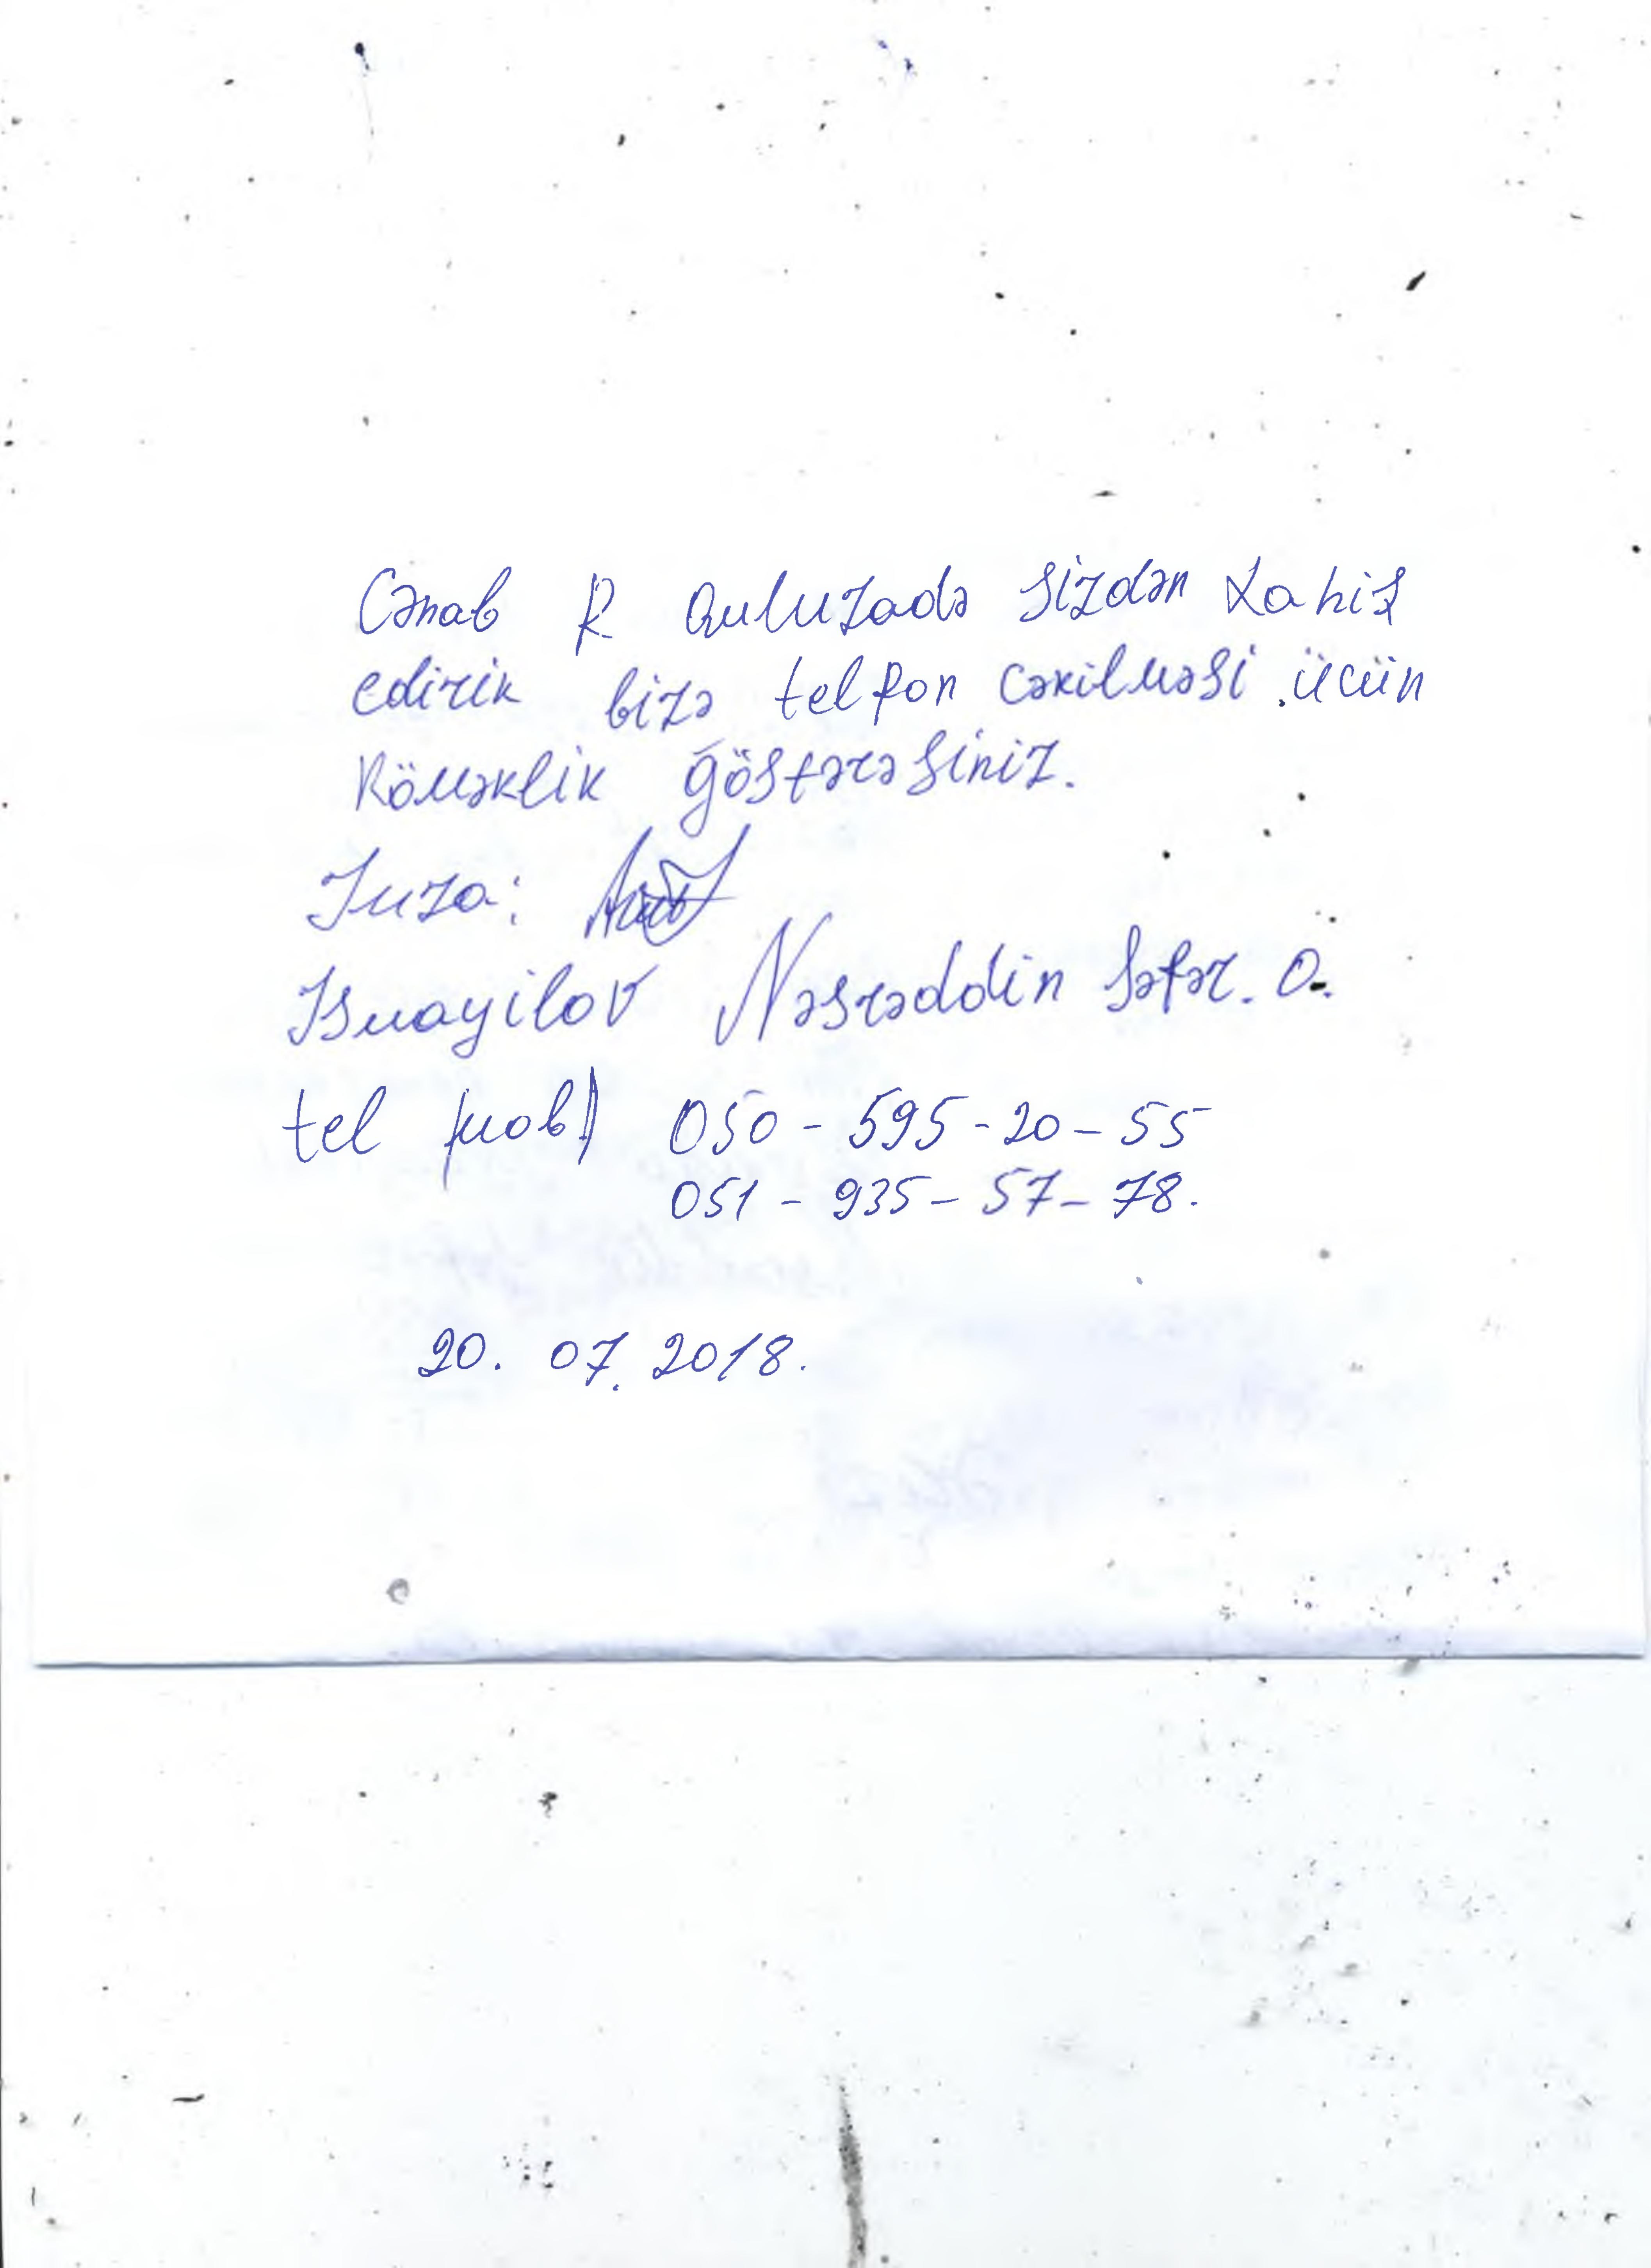 Cənab R Quluzadə Sizdən Xahiş
edirik bizə telfon cəkilməsi ücün
Köməklik göstərəsiniz.
Imza:
Ismayilov Nəsrəddin Səfər. O.
tel (mob) 050 - 595 - 20 - 55
051 - 935 - 57 - 78.
20. 07. 2018.